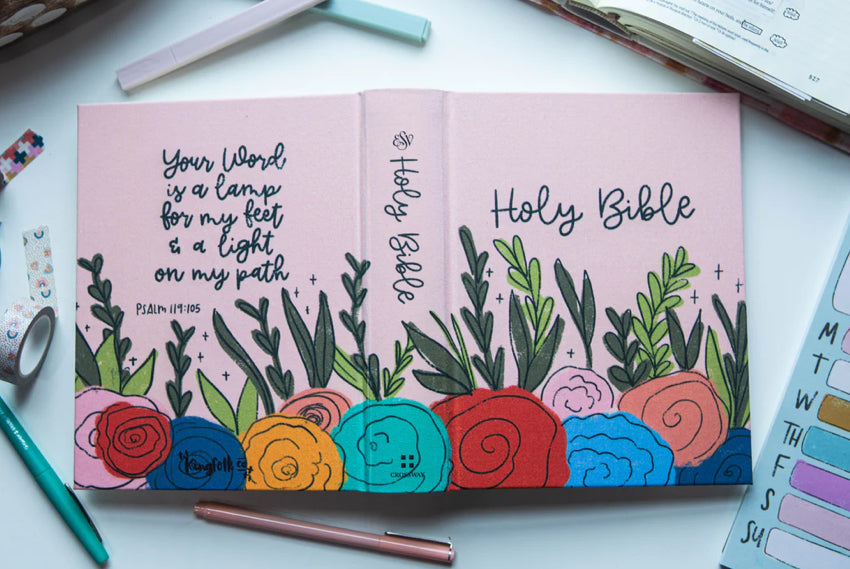 Your Word
is a lamp
for my feet
& a light
on my path
Psalm 119:105
ESV
Holy Bible
CROSSWAY
Holy Bible
517
M
T
W
TH
F
S
SU